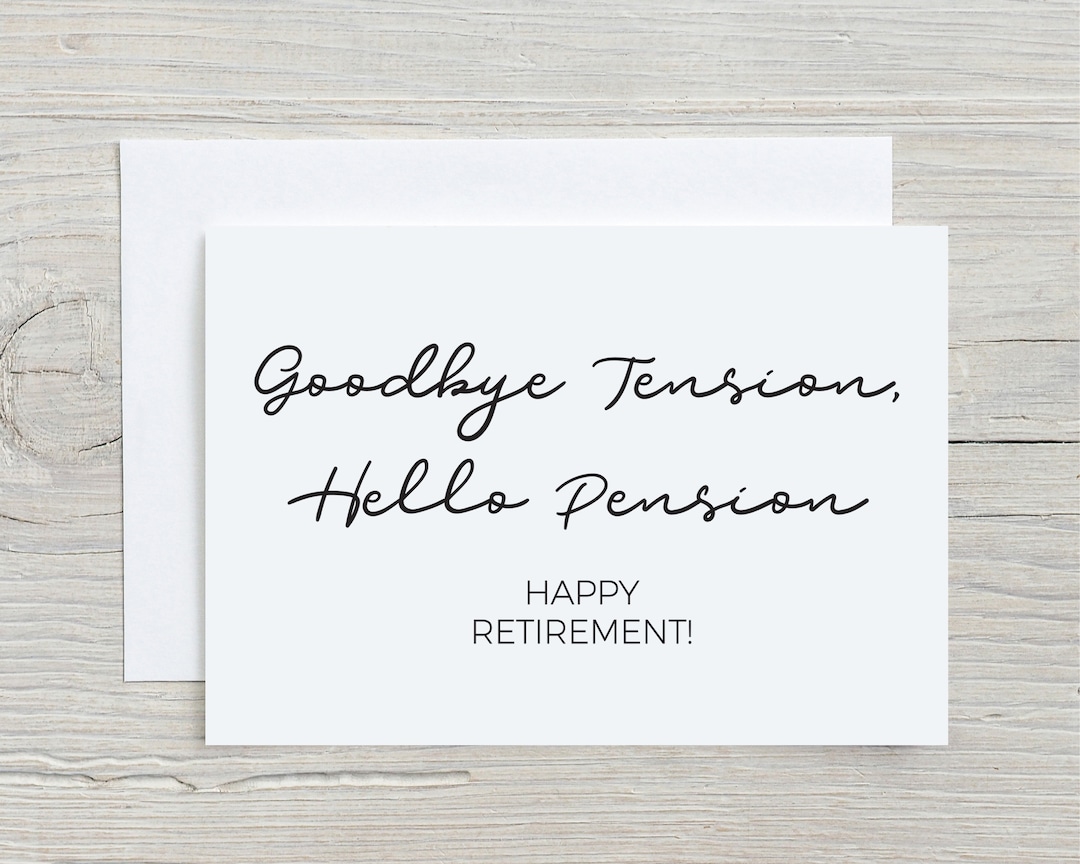 Goodbye Tension,
Hello Pension
HAPPY
RETIREMENT!